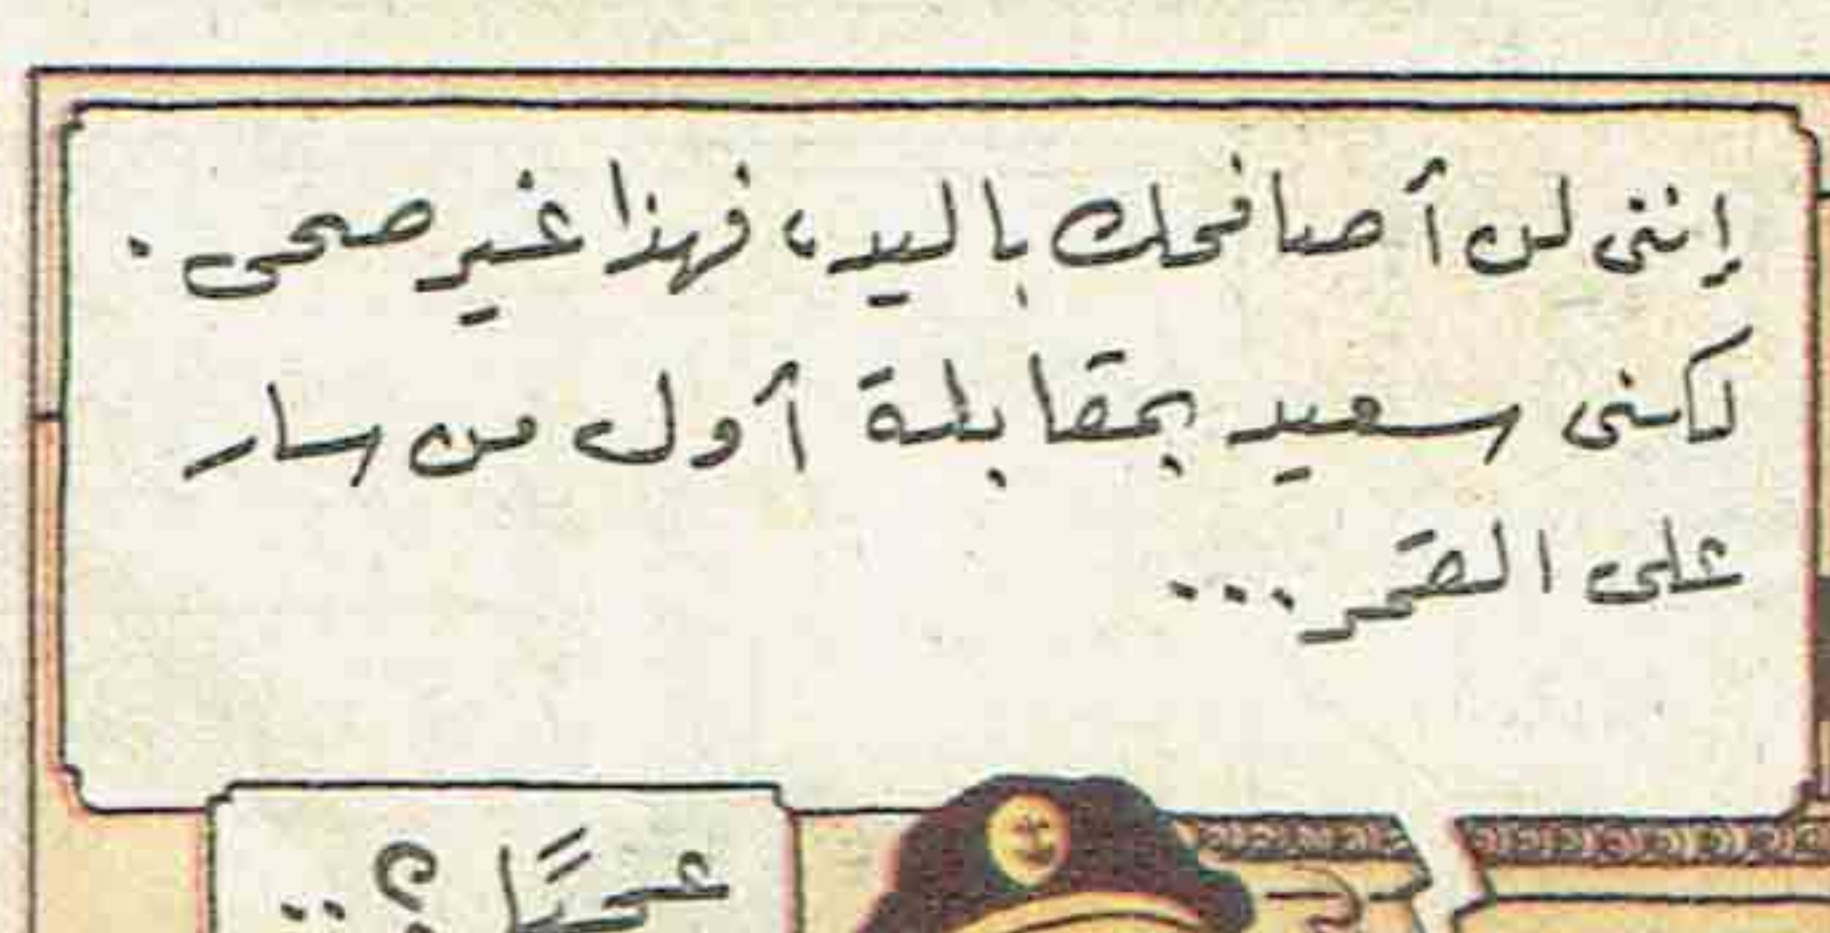 إننى لن أصافحك باليد، فهذا غير صحى.
لكنى سعيد بمقابلة أول من سار
على القمر...
عمَّا؟..